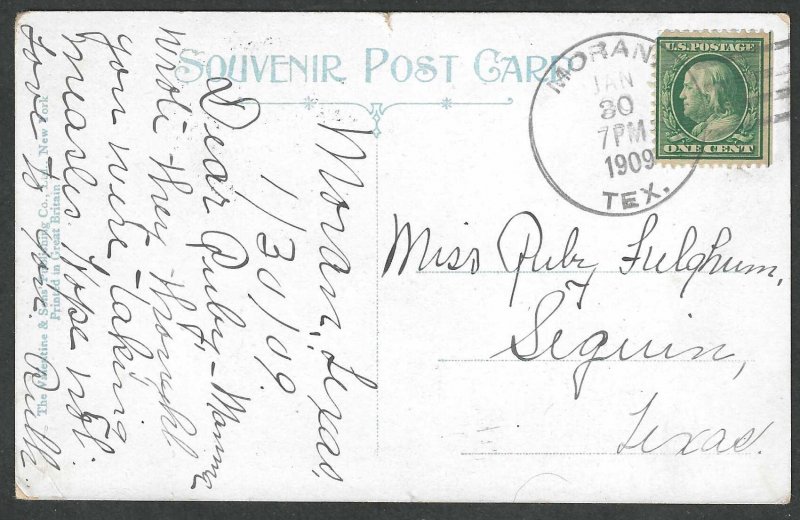 SOUVENIR POST CARD
MORAN,
JAN
30
7PM
1909
TEX.
U.S. POSTAGE
ONE CENT
Moran, Texas,
1/30/09.
Dear Ruby - Mamma
wrote they thought
you were taking
measles. Hope not.
Love to you. Ruth.
Miss Ruby Fulghum,
Seguin,
Texas.
The Valentine & Sons Publishing Co., Ltd., New York
Printed in Great Britain